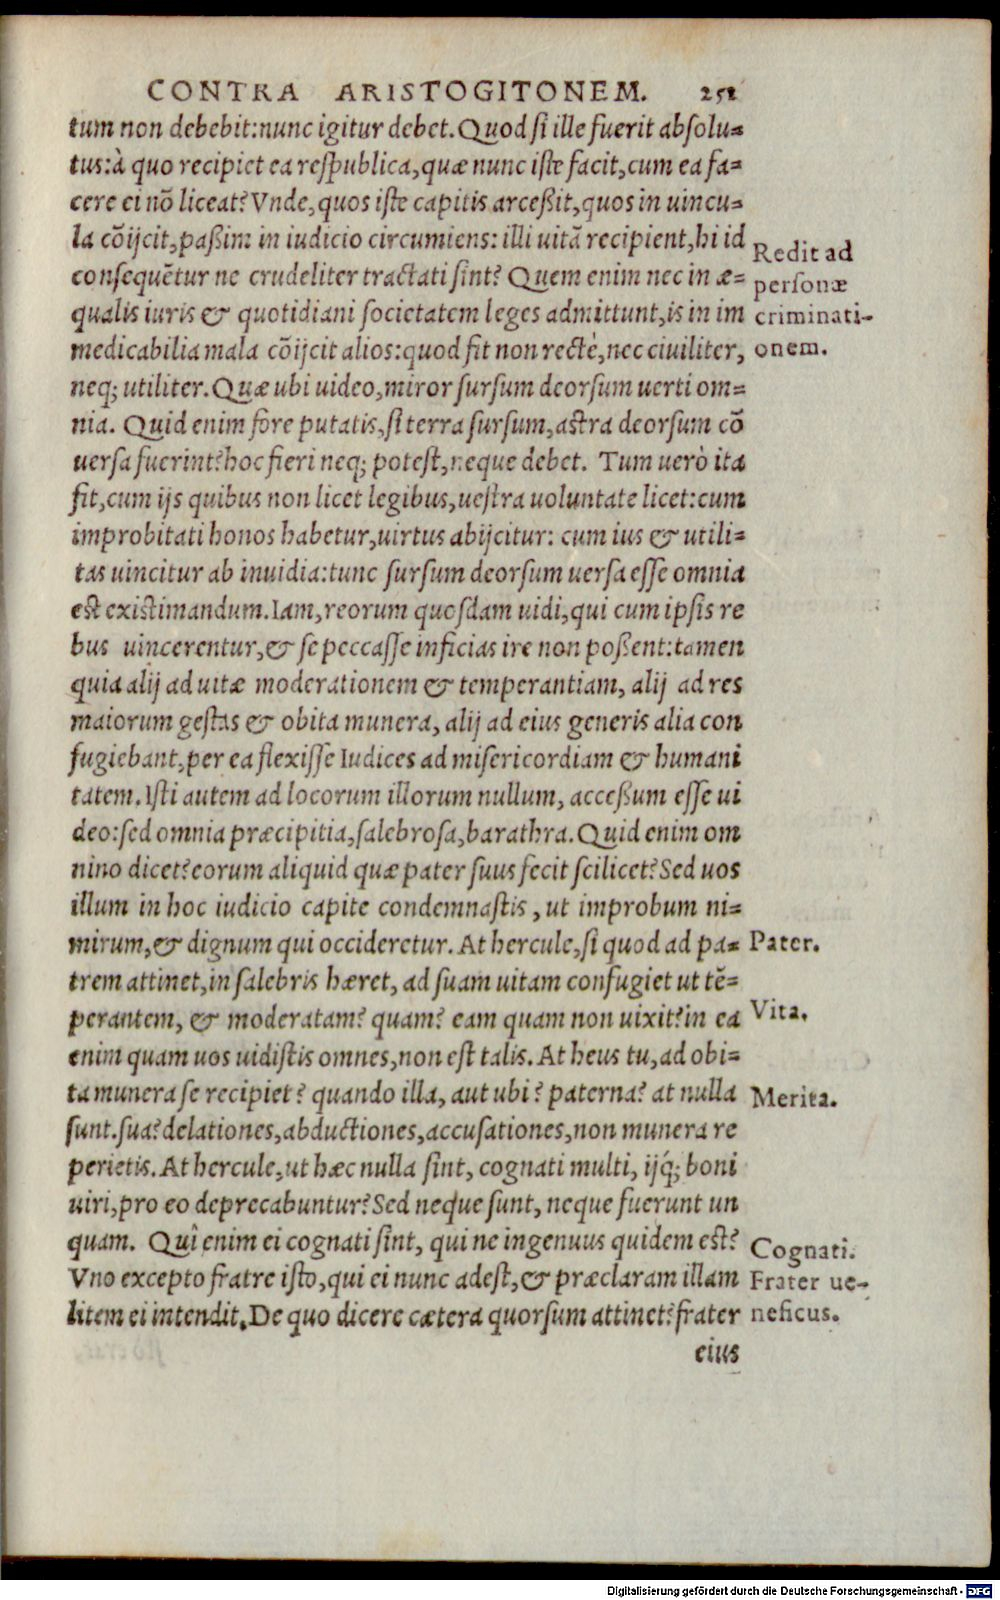 CONTRA ARISTOGITONEM. 251
tum non debebit:nunc igitur debet. Quod si ille fuerit absolu=
tus:à quo recipiet ea respublica, quæ nunc iste facit, cum ea fa=
cere ei nō liceat? Vnde, quos iste capitis arceßit, quos in uincu=
la cōijcit, paßim in iudicio circumiens: illi uitā recipient, hi id
consequētur ne crudeliter tractati sint? Quem enim nec in æ=
qualis iuris & quotidiani societatem leges admittunt, is in im
medicabilia mala cōijcit alios: quod fit non rectè, nec ciuiliter,
neq; utiliter. Quæ ubi uideo, miror sursum deorsum uerti om=
nia. Quid enim fore putatis, si terra sursum, astra deorsum cō
uersa fuerint? hoc fieri neq; potest, neque debet. Tum uerò ita
fit, cum ijs quibus non licet legibus, uestra uoluntate licet: cum
improbitati honos habetur, uirtus abijcitur: cum ius & utili=
tas uincitur ab inuidia: tunc sursum deorsum uersa esse omnia
est existimandum. Iam, reorum quosdam uidi, qui cum ipsis re
bus uincerentur, & se peccasse inficias ire non poßent: tamen
quia alij ad uitæ moderationem & temperantiam, alij ad res
maiorum gestas & obita munera, alij ad eius generis alia con
fugiebant, per ea flexisse Iudices ad misericordiam & humani
tatem. Isti autem ad locorum illorum nullum, acceßum esse ui
deo: sed omnia præcipitia, salebrosa, barathra. Quid enim om
nino dicet? eorum aliquid quæ pater suus fecit scilicet? Sed uos
illum in hoc iudicio capite condemnastis, ut improbum ni=
mirum, & dignum qui occideretur. At hercule, si quod ad pa=
trem attinet, in salebris hæret, ad suam uitam confugiet ut tē=
perantem, & moderatam? quam? eam quam non uixit? in ea
enim quam uos uidistis omnes, non est talis. At heus tu, ad obi=
ta munera se recipiet? quando illa, aut ubi? paterna? at nulla
sunt. sua? delationes, abductiones, accusationes, non munera re
perietis. At hercule, ut hæc nulla sint, cognati multi, ijq́; boni
uiri, pro eo deprecabuntur? Sed neque sunt, neque fuerunt un
quam. Quî enim ei cognati sint, qui ne ingenuus quidem est?
Vno excepto fratre isto, qui ei nunc adest, & præclaram illam
litem ei intendit. De quo dicere cætera quorsum attinet? frater
eius
Redit ad
personæ
criminati-
onem.
Pater.
Vita.
Merita.
Cognati.
Frater ue-
neficus.
Digitalisierung gefördert durch die Deutsche Forschungsgemeinschaft - DFG